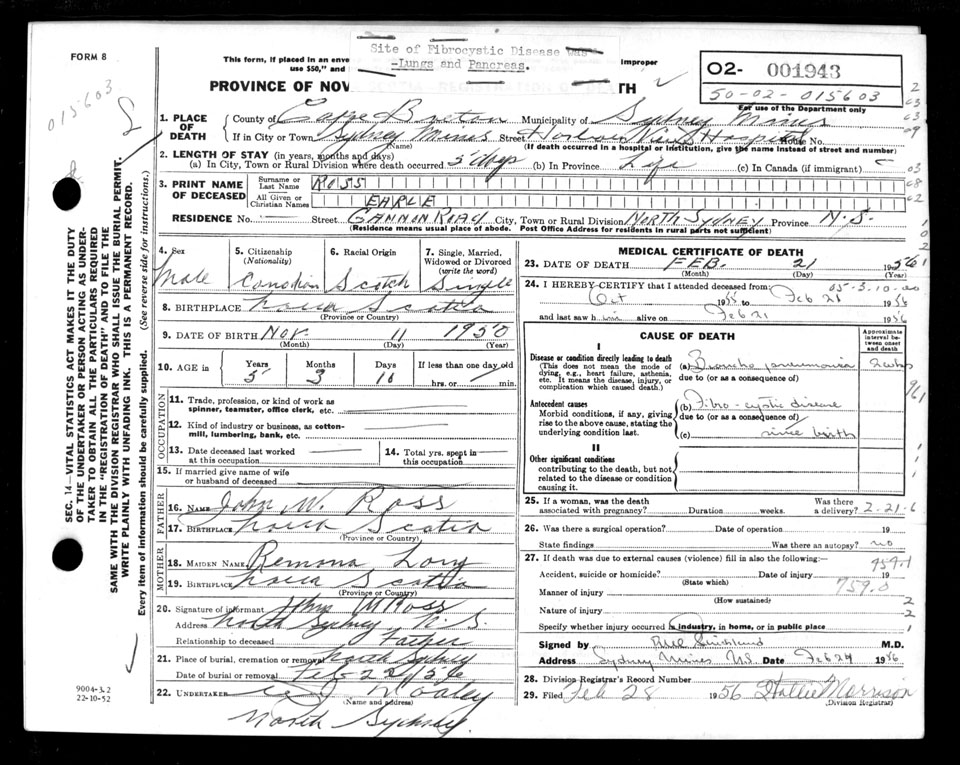 Site of Fibrocystic Disease was
-Lungs and Pancreas.
FORM 8
This form, if placed in an enve
Improper
use $50," and
PROVINCE OF NOV
TH
O2- 001943
50-02-015603
For use of the Department only
015603
1. PLACE OF DEATH
County of Cape Breton Municipality of Sydney Mines
If in City or Town Sydney Mines Street Harbor View Hospital House No.
(Name) (If death occurred in a hospital or institution, give the name instead of street and number)
2. LENGTH OF STAY (in years, months and days)
(a) In City, Town or Rural Division where death occurred 5 days (b) In Province Life (c) In Canada (if immigrant)
3. PRINT NAME OF DECEASED
Surname or Last Name ROSS
All Given or Christian Names EARLE
RESIDENCE No. Street GANNON ROAD City, Town or Rural Division NORTH SYDNEY Province N.S.
(Residence means usual place of abode. Post Office Address for residents in rural parts not sufficient)
4. Sex Male
5. Citizenship (Nationality) Canadian
6. Racial Origin Scotch
7. Single, Married, Widowed or Divorced (write the word) Single
8. BIRTHPLACE Nova Scotia
(Province or Country)
9. DATE OF BIRTH Nov. 11 1950
(Month) (Day) (Year)
10. AGE in Years 5 Months 3 Days 10 If less than one day old hrs. or min.
OCCUPATION
11. Trade, profession, or kind of work as spinner, teamster, office clerk, etc.
12. Kind of industry or business, as cotton-mill, lumbering, bank, etc.
13. Date deceased last worked at this occupation
14. Total yrs. spent in this occupation
15. If married give name of wife or husband of deceased
FATHER
16. NAME John W. Ross
17. BIRTHPLACE Nova Scotia
(Province or Country)
MOTHER
18. MAIDEN NAME Remona Long
19. BIRTHPLACE Nova Scotia
(Province or Country)
20. Signature of informant John W Ross
Address North Sydney N.S.
Relationship to deceased Father
21. Place of burial, cremation or removal North Sydney
Date of burial or removal Feb-22/56
22. UNDERTAKER
(Name and address)
North Sydney
9004-3.2
22-10-52
SEC. 14—VITAL STATISTICS ACT MAKES IT THE DUTY
OF THE UNDERTAKER OR PERSON ACTING AS UNDER-
TAKER TO OBTAIN ALL THE PARTICULARS REQUIRED
IN THE "REGISTRATION OF DEATH" AND TO FILE THE
SAME WITH THE DIVISION REGISTRAR WHO SHALL ISSUE THE BURIAL PERMIT.
WRITE PLAINLY WITH UNFADING INK. THIS IS A PERMANENT RECORD.
Every item of information should be carefully supplied. (See reverse side for instructions.)
MEDICAL CERTIFICATE OF DEATH
23. DATE OF DEATH FEB. 21 1956
(Month) (Day)
24. I HEREBY CERTIFY that I attended deceased from:
05-3.10.00
Oct 1955 to Feb 21 1956
and last saw him alive on Feb 21 1956
CAUSE OF DEATH
Approximate interval between onset and death
I
Disease or condition directly leading to death
(This does not mean the mode of dying, e.g., heart failure, asthenia, etc. It means the disease, injury, or complication which caused death.)
(a) Broncho pneumonia
due to (or as a consequence of)
Antecedent causes
Morbid conditions, if any, giving rise to the above cause, stating the underlying condition last.
(b) Fibro-cystic disease
due to (or as a consequence of)
(c) since birth
II
Other significant conditions
contributing to the death, but not related to the disease or condition causing it.
25. If a woman, was the death associated with pregnancy? Duration weeks. Was there a delivery? 2-21-6
26. Was there a surgical operation? Date of operation 19
State findings Was there an autopsy? no
27. If death was due to external causes (violence) fill in also the following:
Accident, suicide or homicide? Date of injury 19
(State which)
Manner of injury 759.0
(How sustained)
Nature of injury
Specify whether injury occurred in industry, in home, or in public place
Signed by M.D.
Address Sydney Mines N.S. Date Feb 24 1956
28. Division Registrar's Record Number
29. Filed Feb 28 1956 Hallie Morrison
(Division Registrar)